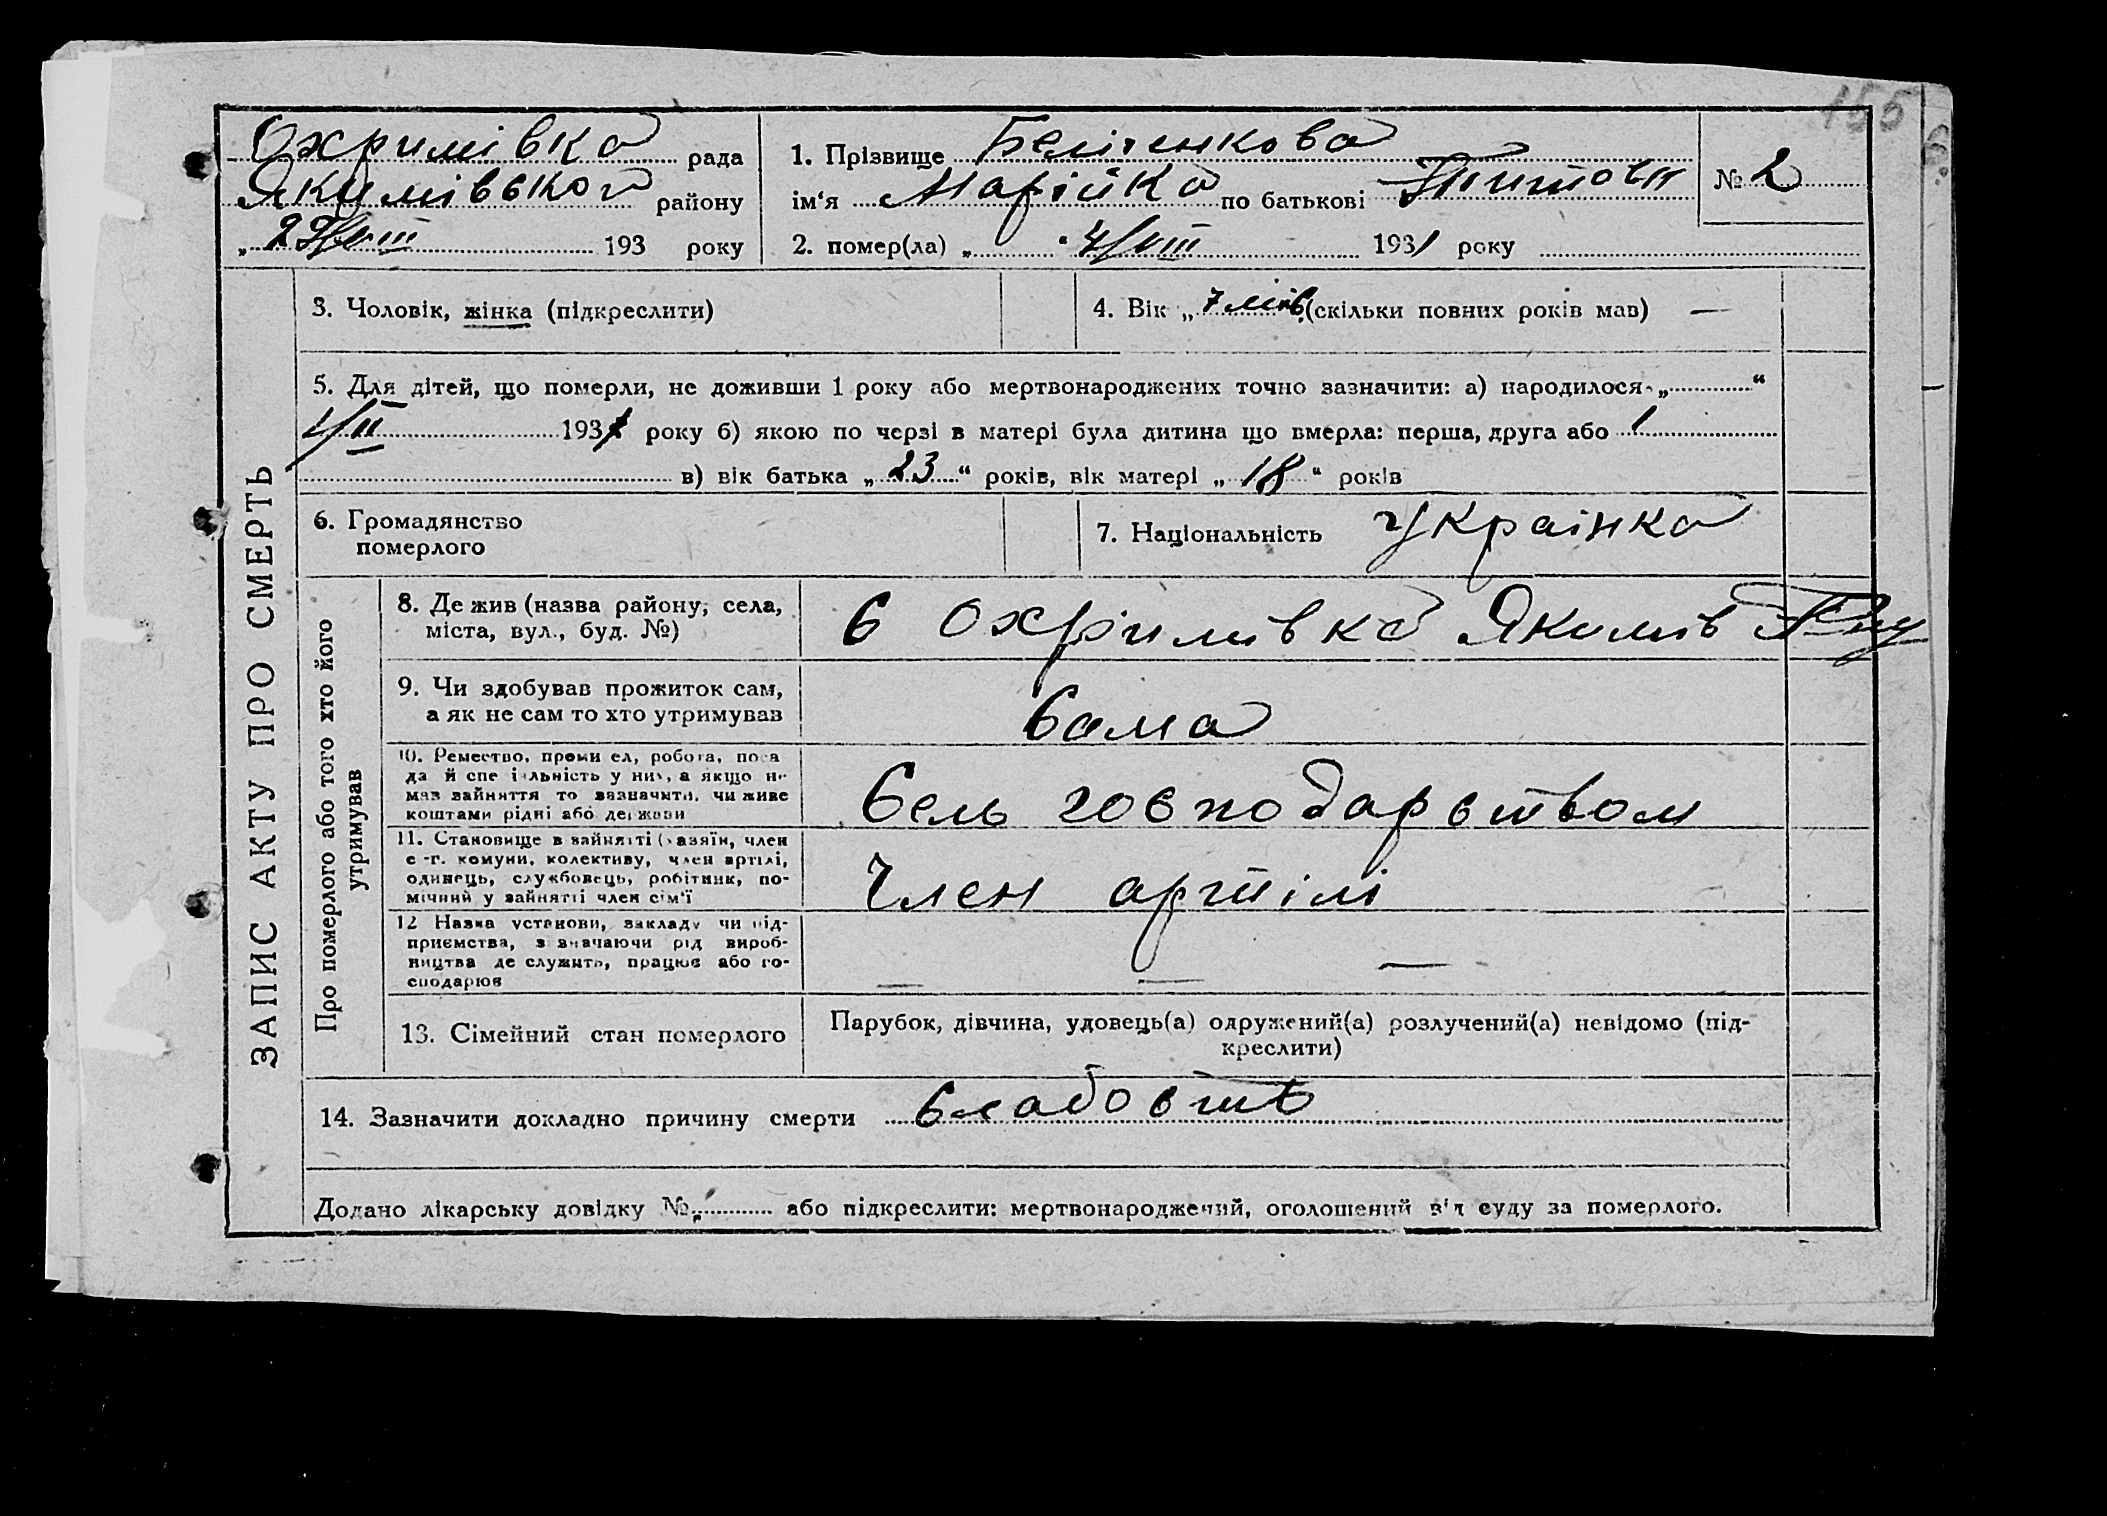 155
Охримівка рада
Якимівського району
„ 29/VIII 193 року
1. Прізвище Беліченкова
ім‘я Марійка по батькові
2. помер(ла) „ “ 4/VIII 1931 року
№ 2
ЗАПИС АКТУ ПРО СМЕРТЬ
3. Чоловік, жінка (підкреслити)
4. Вік „ 7 міс (скільки повних років мав) —
5. Для дітей, що померли, не доживши 1 року або мертвонароджених точно зазначити: а) народилося „ “
1/II 1931 року б) якою по черзі в матері була дитина що вмерла: перша, друга або 1
в) вік батька „ 23 “ років, вік матері „ 18 “ років
6. Громадянство
померлого
7. Національність Украінка
Про померлого або того хто його
утримував
8. Де жив (назва району, села,
міста, вул., буд. №)
с Охрімівка Якимів
9. Чи здобував прожиток сам,
а як не сам то хто утримував
Сама
10. Ремество, промисел, робота, поса
да й спеціяльність у них, а якщо не
мав зайняття то зазначити, чи живе
коштами рідні або держави
Сель господарством
11. Становище в зайнятті (хазяїн, член
с-г. комуни, колективу, член артілі,
одинець, службовець, робітник, по-
мічний у зайнятті член сім‘ї
Член артілі
12 Назва установи, закладу чи під-
приємства, зазначаючи рід вироб-
ництва де служить, працює або го-
сподарює
— — —
13. Сімейний стан померлого
Парубок, дівчина, удовець(а) одружений(а) розлучений(а) невідомо (під-
креслити)
14. Зазначити докладно причину смерти Слабость
Додано лікарську довідку № „ або підкреслити: мертвонароджений, оголошений від суду за померлого.